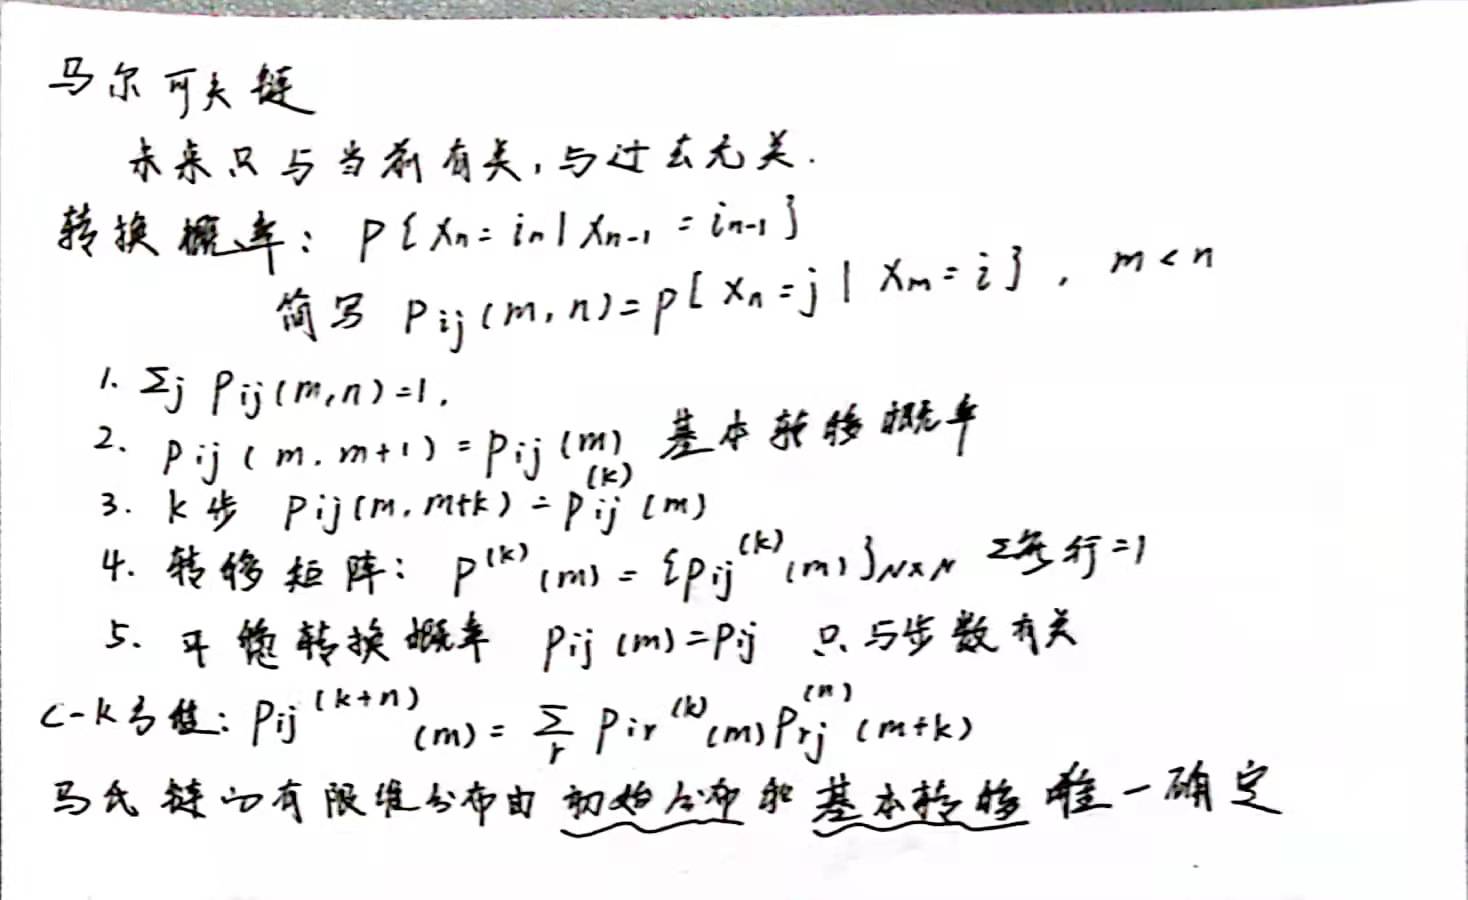 马尔可夫链
未来只与当前有关,与过去无关.
转换概率: P{Xn=in|Xn-1=in-1}
简写 Pij(m,n)=P{Xn=j|Xm=i}, m<n
1. Σj Pij(m,n)=1.
2. Pij(m,m+1)=Pij(m) 基本转移概率
3. k步 Pij(m,m+k)=Pij^(k)(m)
4. 转移矩阵: P^(k)(m)={Pij^(k)(m)}N×N Σ每行=1
5. 平稳转换概率 Pij(m)=Pij 只与步数有关
C-K方程: Pij^(k+n)(m)=Σr Pir^(k)(m)Prj^(n)(m+k)
马氏链的有限维分布由初始分布和基本转移唯一确定